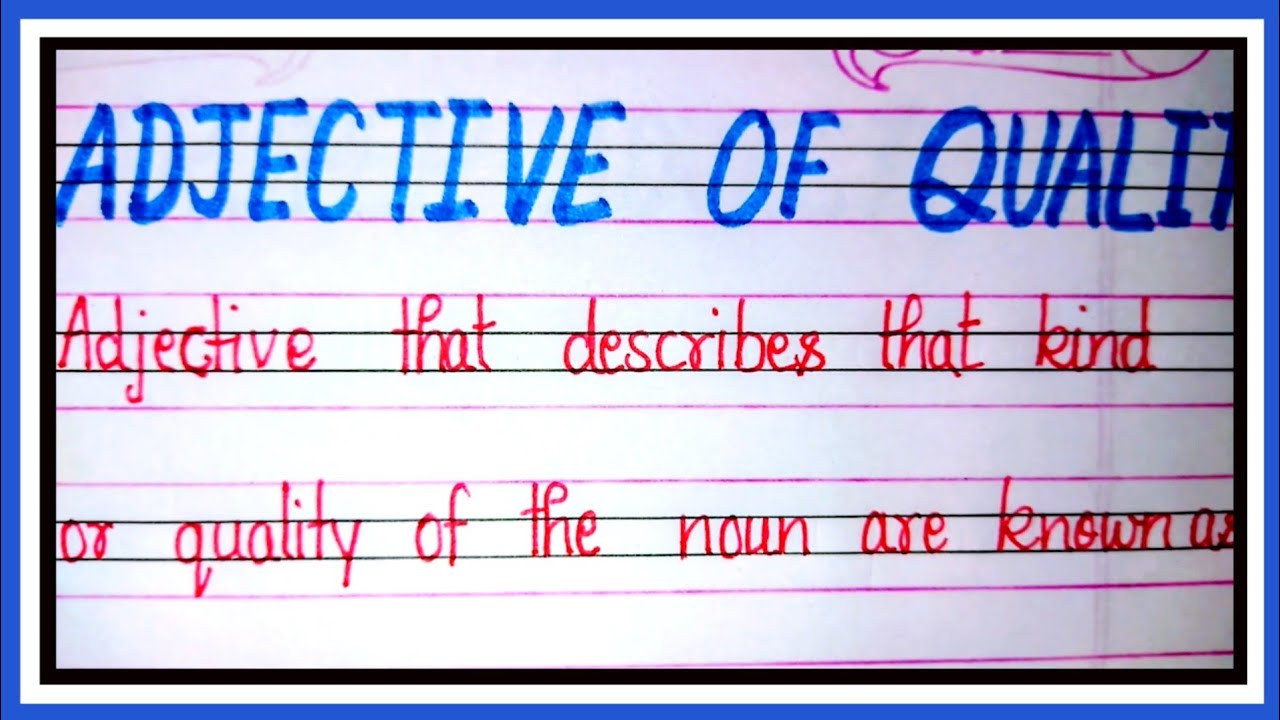 ADJECTIVE OF QUALIT
Adjective that describes that kind
or quality of the noun are known as